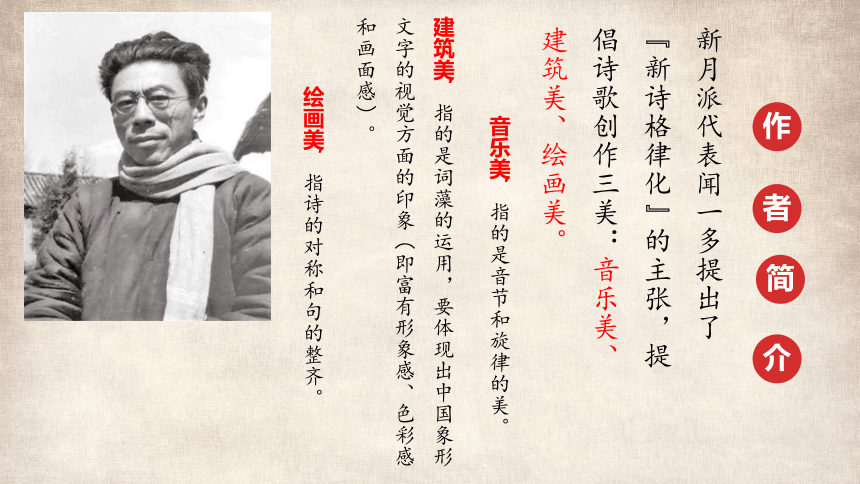 作者简介
新月派代表闻一多提出了
『新诗格律化』的主张，提
倡诗歌创作三美：音乐美、
建筑美、绘画美。
音乐美，指的是音节和旋律的美。
建筑美，指的是词藻的运用，要体现出中国象形
文字的视觉方面的印象（即富有形象感、色彩感
和画面感）。
绘画美，指诗的对称和句的整齐。